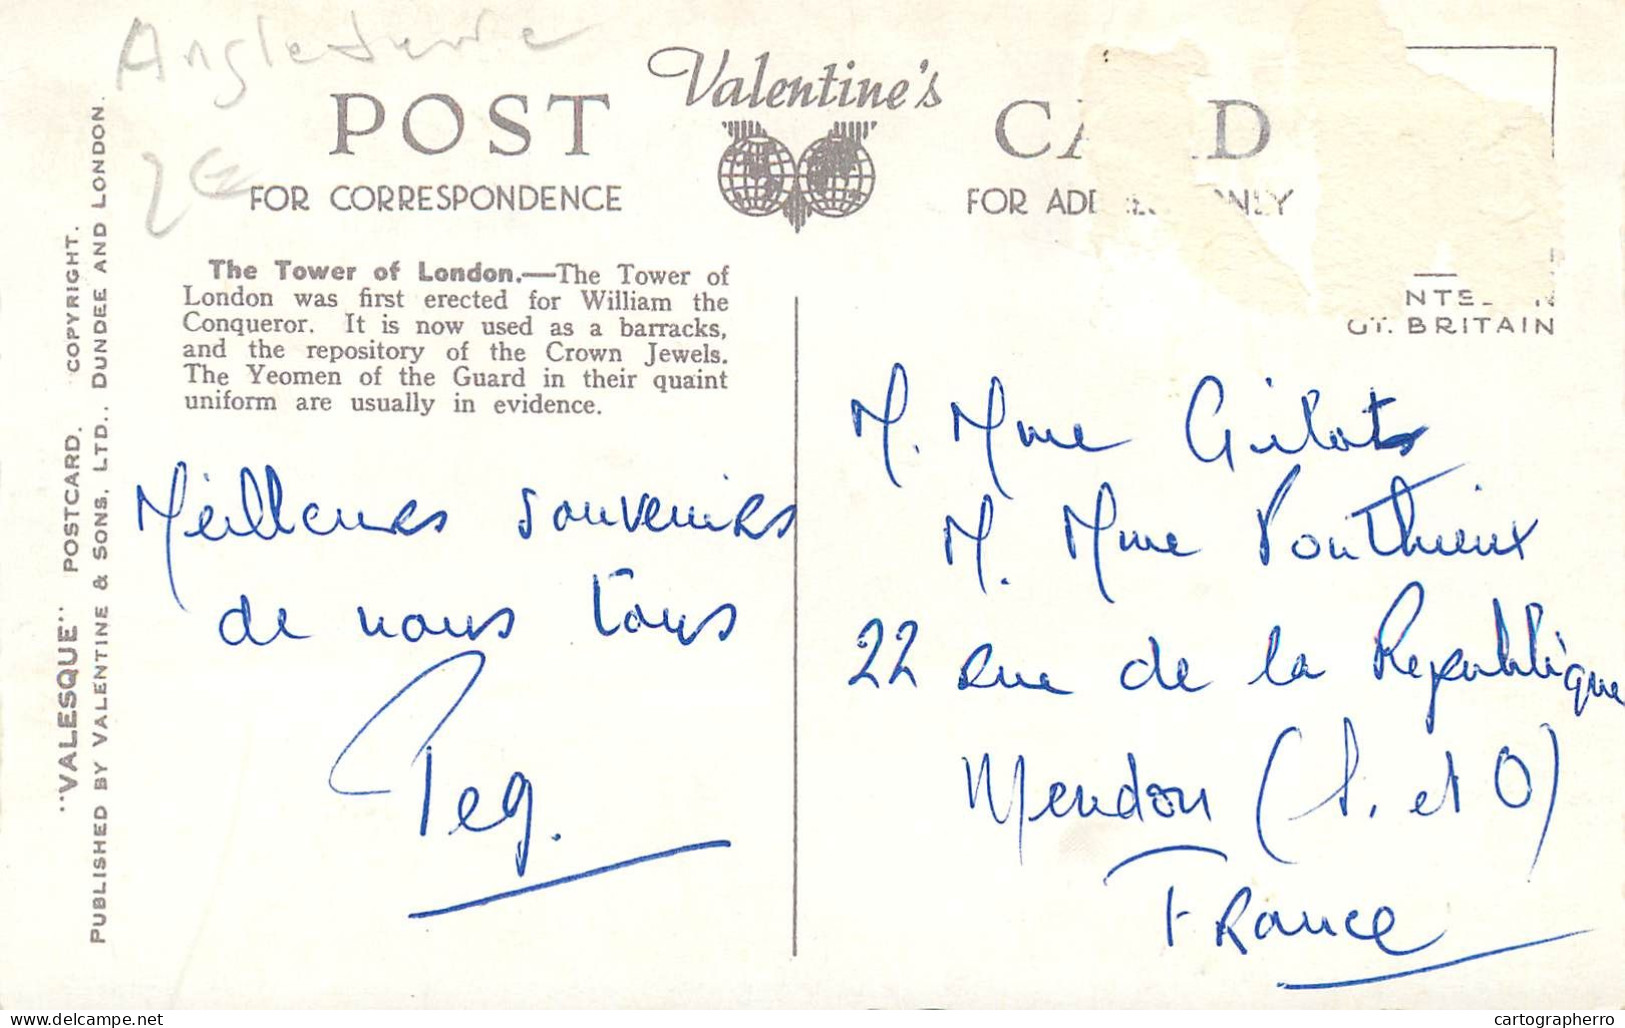 Angleterre
2€
Valentine's
POST CARD
FOR CORRESPONDENCE
FOR ADD ONLY
The Tower of London.—The Tower of
London was first erected for William the
Conqueror. It is now used as a barracks,
and the repository of the Crown Jewels.
The Yeomen of the Guard in their quaint
uniform are usually in evidence.
NTE IN
GT. BRITAIN
"VALESQUE" POSTCARD. COPYRIGHT.
PUBLISHED BY VALENTINE & SONS, LTD., DUNDEE AND LONDON.
Meilleurs souvenirs
de nous tous
Peg.
M. Mme Gilots
M. Mme Ponthieux
22 rue de la République
Meudon (S. et O)
France
delcampe.net
cartographerro